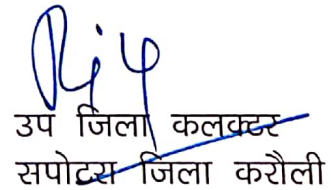 उप जिला कलक्टर
सपोटरा जिला करौली